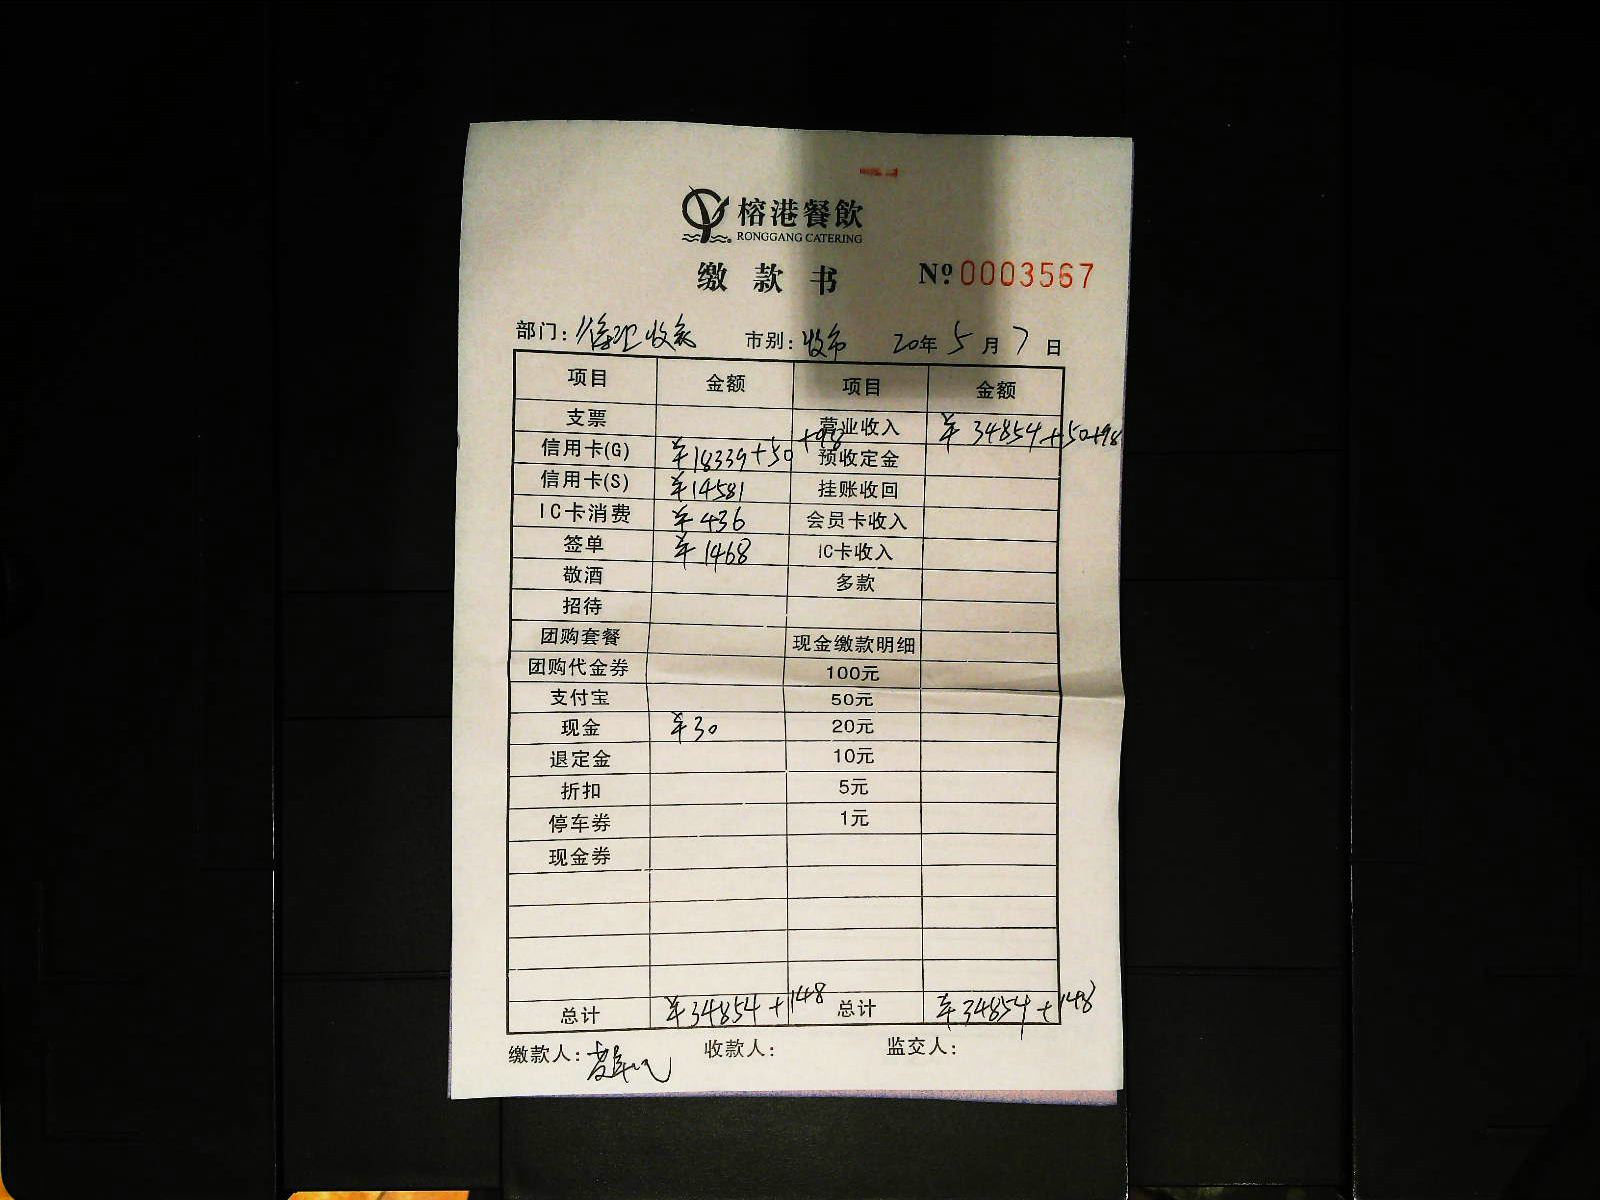 榕港餐飲
RONGGANG CATERING
缴款书 Nº 0003567
部门: 收表 市别: 收市 20年5月7日
项目 金额 项目 金额
支票 营业收入 ¥34854+50+98
信用卡(G) ¥18339+50+98 预收定金
信用卡(S) ¥14581 挂账收回
IC卡消费 ¥436 会员卡收入
签单 ¥1468 IC卡收入
敬酒 多款
招待
团购套餐 现金缴款明细
团购代金券 100元
支付宝 50元
现金 ¥30 20元
退定金 10元
折扣 5元
停车券 1元
现金券
总计 ¥34854+148 总计 ¥34854+148
缴款人: 收款人: 监交人: